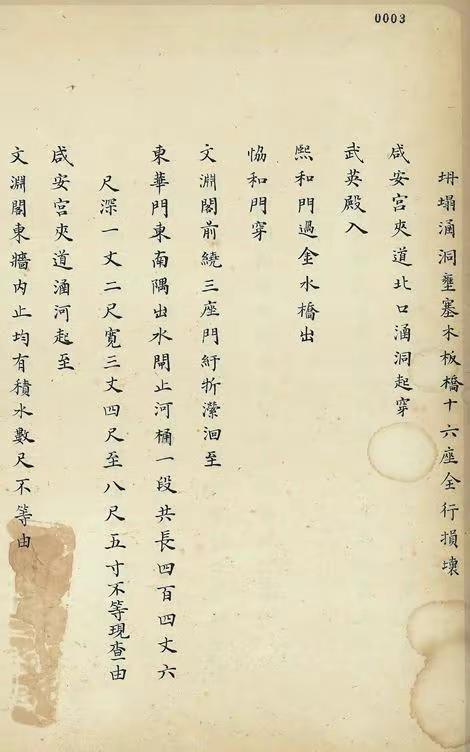 0003
坍塌涵洞壅塞木板橋十六座全行損壞
咸安宮夾道北口涵洞起穿
武英殿入
熙和門過金水橋出
恊和門穿
文淵閣前繞三座門紆折瀠洄至
東華門東南隅出水閘止河桶一段共長四百四丈六
尺深一丈二尺寬三丈四尺至八尺五寸不等現查由
咸安宮夾道涵河起至
文淵閣東牆內止均有積水數尺不等由